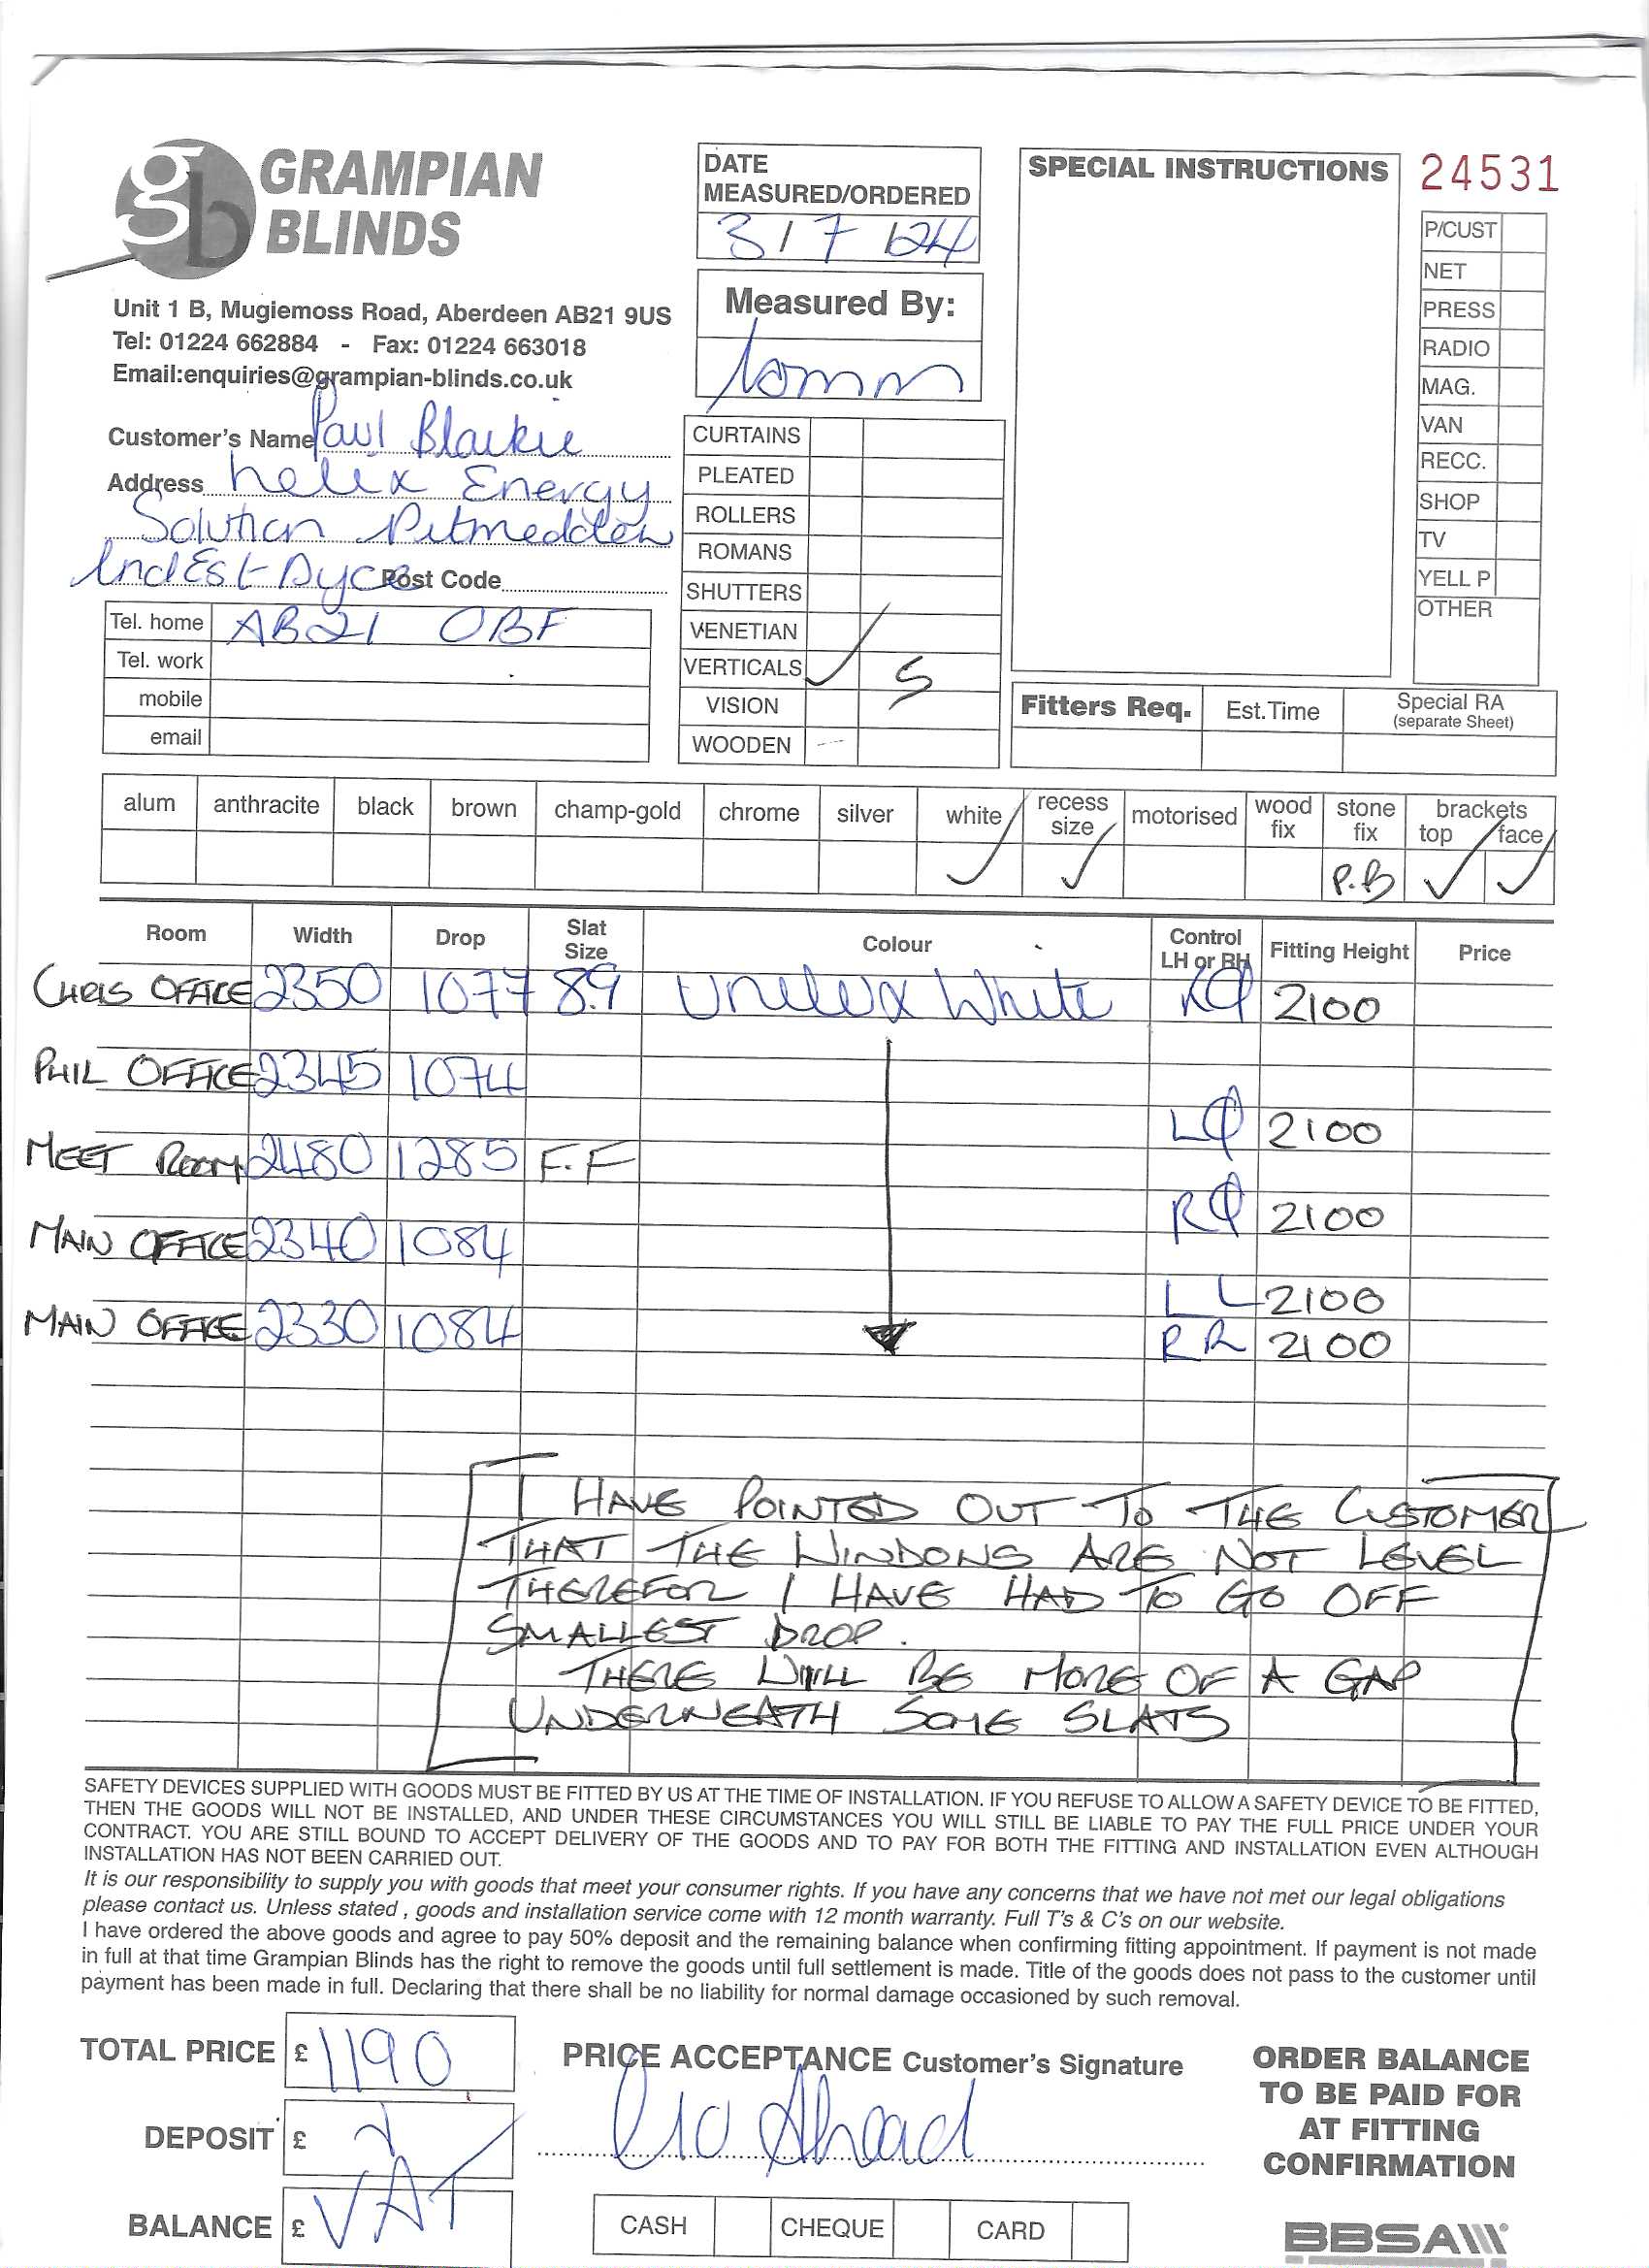 GRAMPIAN
BLINDS
Unit 1 B, Mugiemoss Road, Aberdeen AB21 9US
Tel: 01224 662884 - Fax: 01224 663018
Email:enquiries@grampian-blinds.co.uk
DATE
MEASURED/ORDERED
3/7/24
Measured By:
SPECIAL INSTRUCTIONS
24531
P/CUST
NET
PRESS
RADIO
MAG.
VAN
RECC.
SHOP
TV
YELL P
OTHER
Customer's Name Paul Blackie
Address Helix Energy
Solution Pitmedden
Ind Est Dyce Post Code
Tel. home AB21 0BF
Tel. work
mobile
email
CURTAINS
PLEATED
ROLLERS
ROMANS
SHUTTERS
VENETIAN
VERTICALS ✓ 5
VISION
WOODEN
Fitters Req. Est.Time Special RA
(separate Sheet)
alum anthracite black brown champ-gold chrome silver white recess size motorised wood fix stone fix brackets top face
✓ ✓ P.B ✓ ✓
Room Width Drop Slat Size Colour Control LH or RH Fitting Height Price
CHRIS OFFICE 2350 1077 89 Unilux White 2100
PHIL OFFICE 2345 1074
2100
MEET ROOM 2480 1285 F.F
2100
MAIN OFFICE 2340 1084
L L 2100
MAIN OFFICE 2330 1084 R R 2100
I HAVE POINTED OUT TO THE CUSTOMER
THAT THE WINDOWS ARE NOT LEVEL
THEREFOR I HAVE HAD TO GO OFF
SMALLEST DROP.
THERE WILL BE MORE OF A GAP
UNDERNEATH SOME SLATS
SAFETY DEVICES SUPPLIED WITH GOODS MUST BE FITTED BY US AT THE TIME OF INSTALLATION. IF YOU REFUSE TO ALLOW A SAFETY DEVICE TO BE FITTED,
THEN THE GOODS WILL NOT BE INSTALLED, AND UNDER THESE CIRCUMSTANCES YOU WILL STILL BE LIABLE TO PAY THE FULL PRICE UNDER YOUR
CONTRACT. YOU ARE STILL BOUND TO ACCEPT DELIVERY OF THE GOODS AND TO PAY FOR BOTH THE FITTING AND INSTALLATION EVEN ALTHOUGH
INSTALLATION HAS NOT BEEN CARRIED OUT.
It is our responsibility to supply you with goods that meet your consumer rights. If you have any concerns that we have not met our legal obligations
please contact us. Unless stated , goods and installation service come with 12 month warranty. Full T's & C's on our website.
I have ordered the above goods and agree to pay 50% deposit and the remaining balance when confirming fitting appointment. If payment is not made
in full at that time Grampian Blinds has the right to remove the goods until full settlement is made. Title of the goods does not pass to the customer until
payment has been made in full. Declaring that there shall be no liability for normal damage occasioned by such removal.
TOTAL PRICE £ 1190
PRICE ACCEPTANCE Customer's Signature
Go Ahead
DEPOSIT £
BALANCE £ VAT
CASH CHEQUE CARD
ORDER BALANCE
TO BE PAID FOR
AT FITTING
CONFIRMATION
BBSA